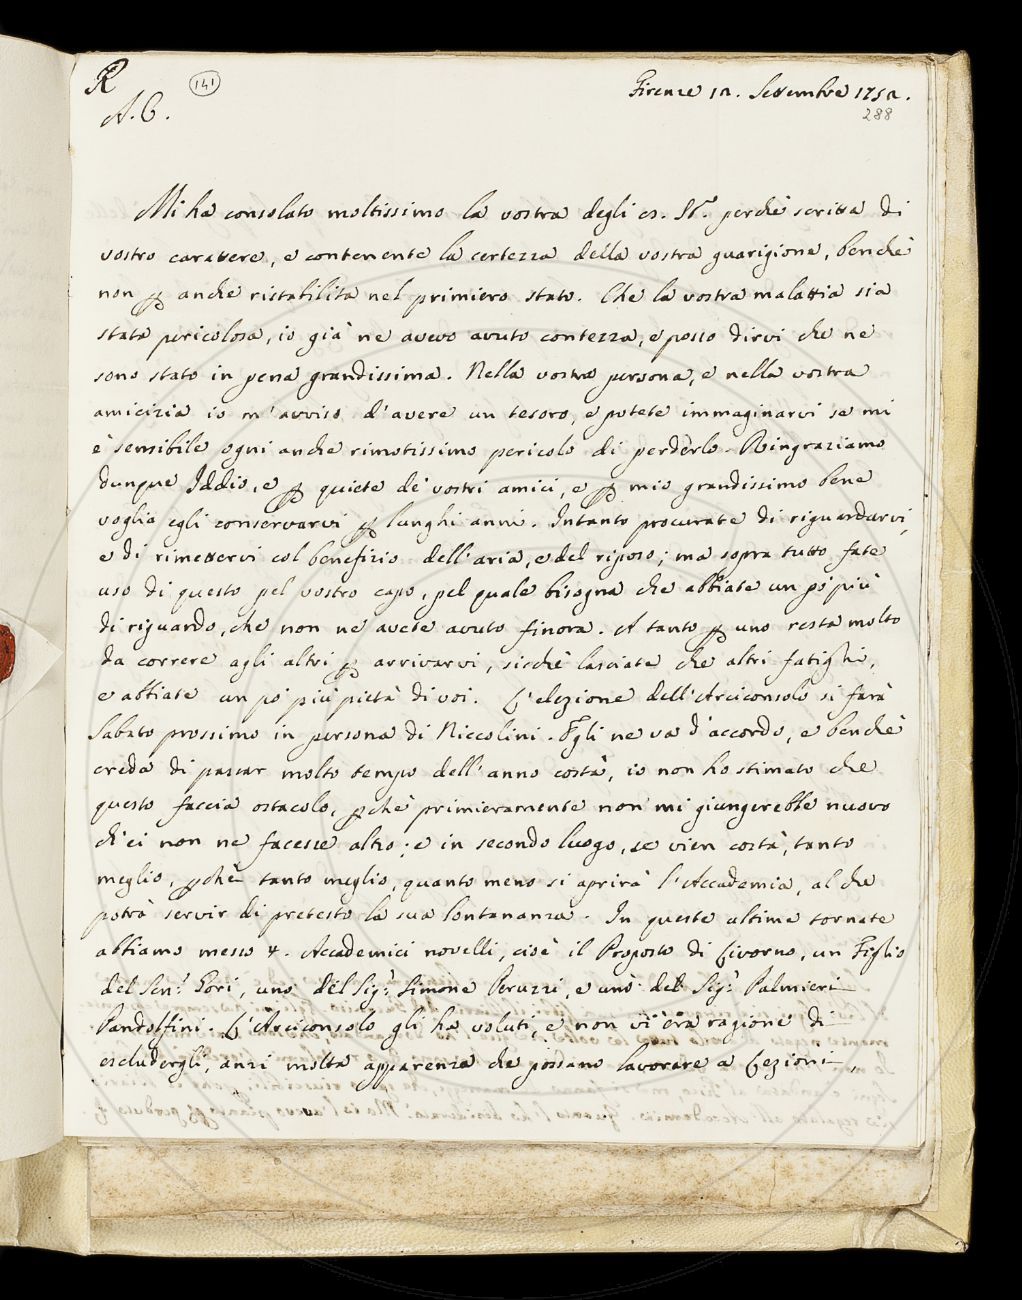 R
A. C.
141
Firenze 12. Settembre 1752.
288
Mi ha consolato moltissimo la vostra degli 11. St.e perchè scritta di
vostro carattere, e contenente la certezza della vostra guarigione, benchè
non p anche ristabilita nel primiero stato. Che la vostra malattia sia
stata pericolosa, io già ne avevo avuto contezza, e posso dirvi che ne
sono stato in pena grandissima. Nella vostra persona, e nella vostra
amicizia io m'avviso d'avere un tesoro, e potete immaginarvi se mi
è sensibile ogni anche rimotissimo pericolo di perderlo. Ringraziamo
dunque Iddio, e p quiete de' vostri amici, e p mio grandissimo bene
voglia egli conservarvi p lunghi anni. Intanto procurate di riguardarvi,
e di rimettervi col benefizio dell'aria, e del riposo; ma sopra tutto fate
uso di questo pel vostro capo, pel quale bisogna che abbiate un pò più
di riguardo, che non ne avete avuto finora. A tanto p uno resta molto
da correre agli altri p arrivarvi, sicchè lasciate che altri fatighi,
e abbiate un pò più pietà di voi. L'elezione dell'Arciconsolo si farà
Sabato prossimo in persona di Niccolini. Egli ne va d'accordo, e benchè
creda di passar molto tempo dell'anno costà, io non ho stimato che
questo faccia ostacolo, pchè primieramente non mi giungerebbe nuovo
ch'ei non ne facesse altro; e in secondo luogo, se vien costà, tanto
meglio, pchè tanto meglio, quanto meno si aprirà l'Accademia, al che
potrà servir di pretesto la sua lontananza. In queste ultime tornate
abbiamo messo 4. Accademici novelli, cioè il Proposto di Livorno, un Figlio
del Sen.r Gori, uno del Sig.r Simone Peruzzi, e uno del Sig.r Palmieri
Pandolfini. L'Arciconsolo gli ha voluti, e non vi era ragione di
escludergli, anzi molta apparenza che possano lavorare a Lezioni,